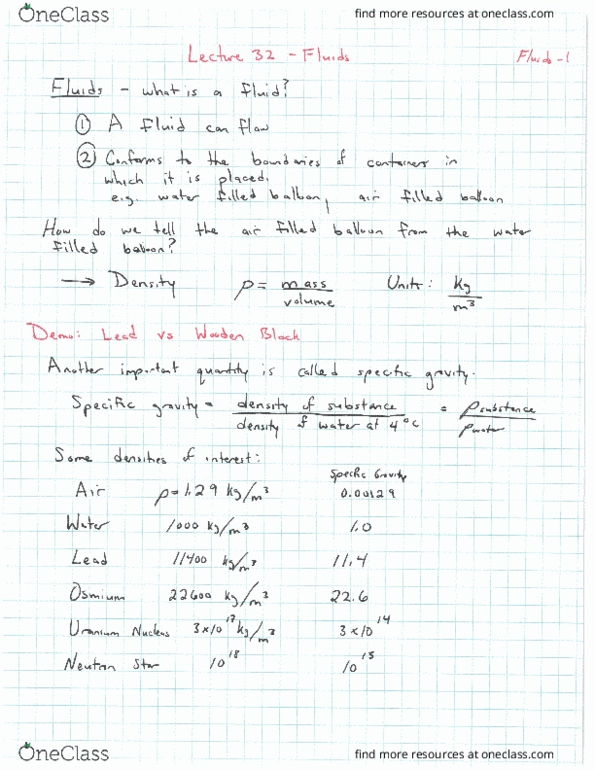 OneClass find more resources at oneclass.com
Lecture 32 - Fluids Fluids-1
Fluids - what is a fluid?
① A fluid can flow
② Conforms to the boundaries of containers in
which it is placed.
e.g. water filled balloon, air filled balloon
How do we tell the air filled balloon from the water
filled balloon?
→ Density ρ = mass / volume Units: kg / m³
Demo: Lead vs Wooden Block
Another important quantity is called specific gravity.
Specific gravity = density of substance / density of water at 4°C = ρsubstance / ρwater
Some densities of interest:
Specific Gravity
Air ρ=1.29 kg/m³ 0.00129
Water 1000 kg/m³ 1.0
Lead 11400 kg/m³ 11.4
Osmium 22600 kg/m³ 22.6
Uranium Nucleus 3x10¹⁷ kg/m³ 3x10¹⁴
Neutron Star 10¹⁸ 10¹⁵
OneClass find more resources at oneclass.com